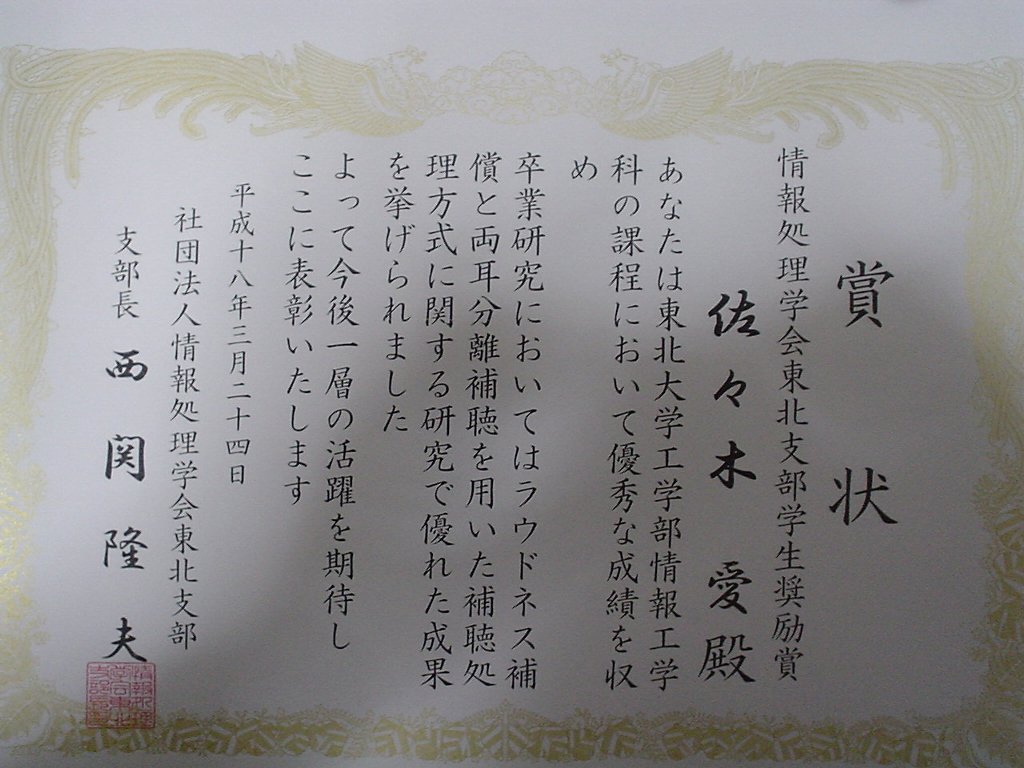 賞状
情報処理学会東北支部学生奨励賞
佐々木愛殿
あなたは東北大学工学部情報工学
科の課程において優秀な成績を収
め
卒業研究においてはラウドネス補
償と両耳分離補聴を用いた補聴処
理方式に関する研究で優れた成果
を挙げられました
よって今後一層の活躍を期待し
ここに表彰いたします
平成十八年三月二十四日
社団法人情報処理学会東北支部
支部長 西関隆夫